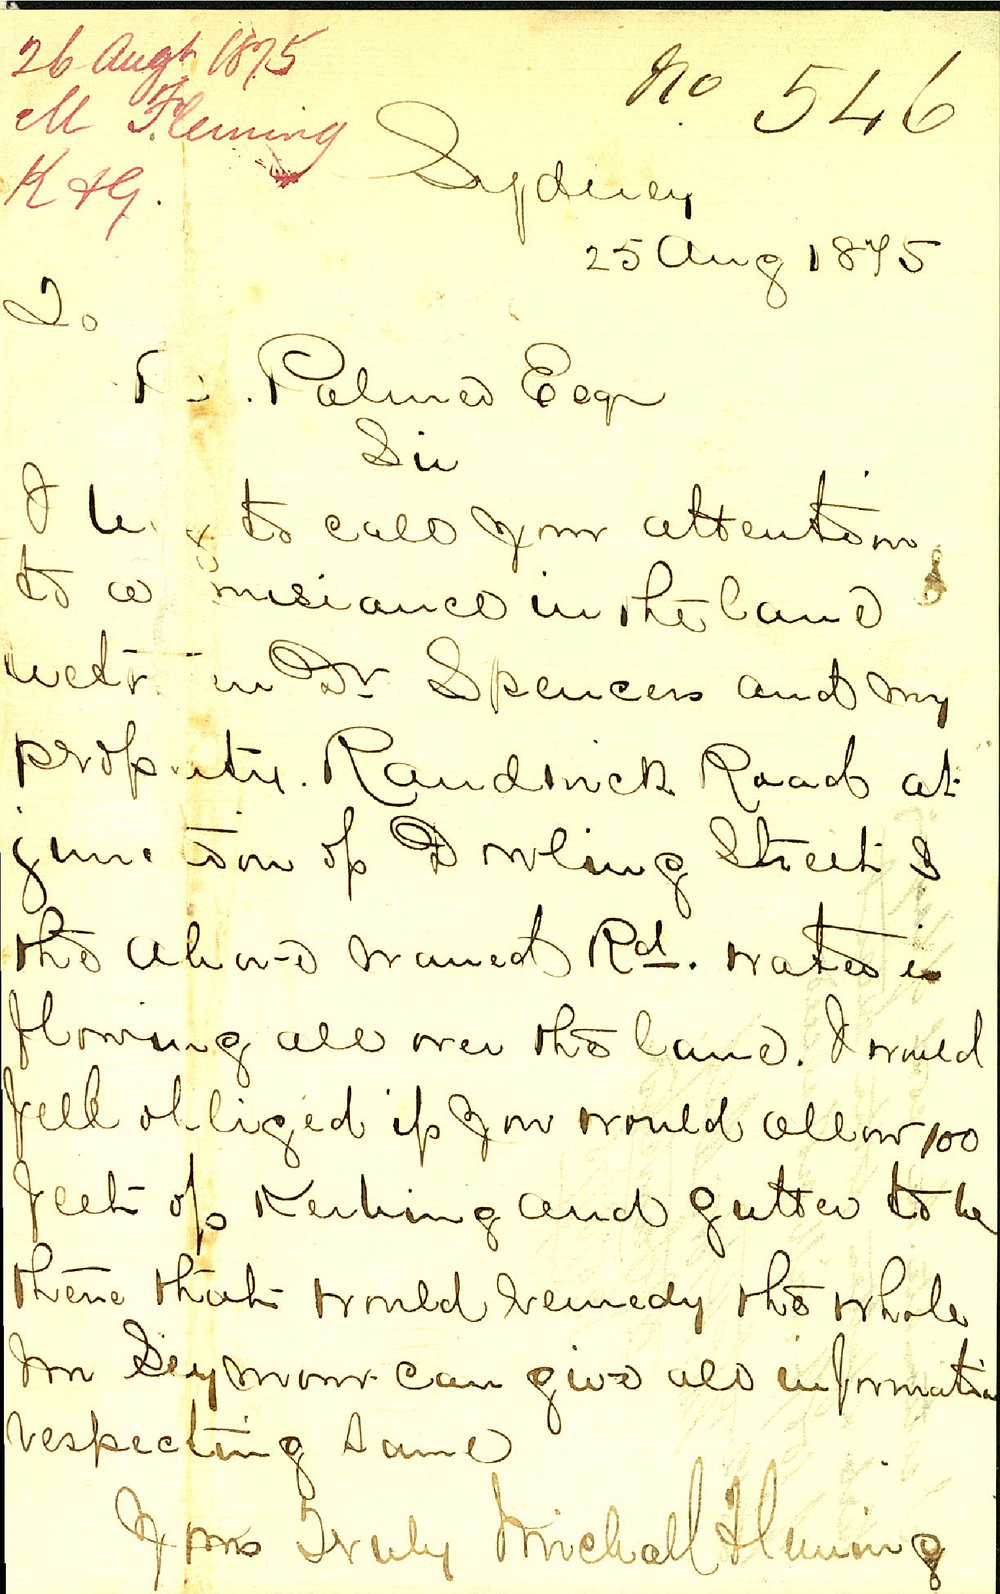 26 Augt 1875
M Fleming
K & G.
No 546
Sydney
25 Aug 1875
To
Palmer Esqr
Sir
I beg to call your attention
to a nusiance in the land
betwen Dr Spencers and my
property. Randwick Road at
junction of Dowling Street &
the above named Rd. water is
flowing all over the land. I would
feel obliged if you would allow 100
feet of Kerbing and gutter to be
there that would remedy the whole
Mr Seymour can give all information
respecting same
Yours Truly Michall Fleming